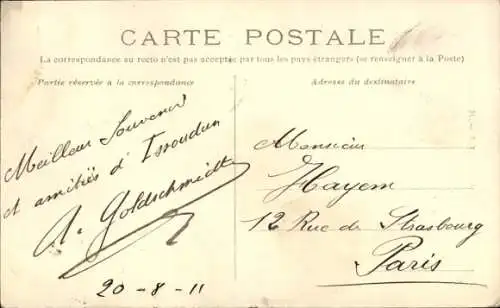 CARTE POSTALE
La correspondance au recto n'est pas acceptée par tous les pays étrangers (se renseigner à la Poste)
Partie réservée à la correspondance
Adresse du destinataire
Meilleur Souvenir
et amitiés d'Issoudun
A. Goldschmidt
20-8-11
Monsieur
Hayem
12 Rue de Strasbourg
Paris